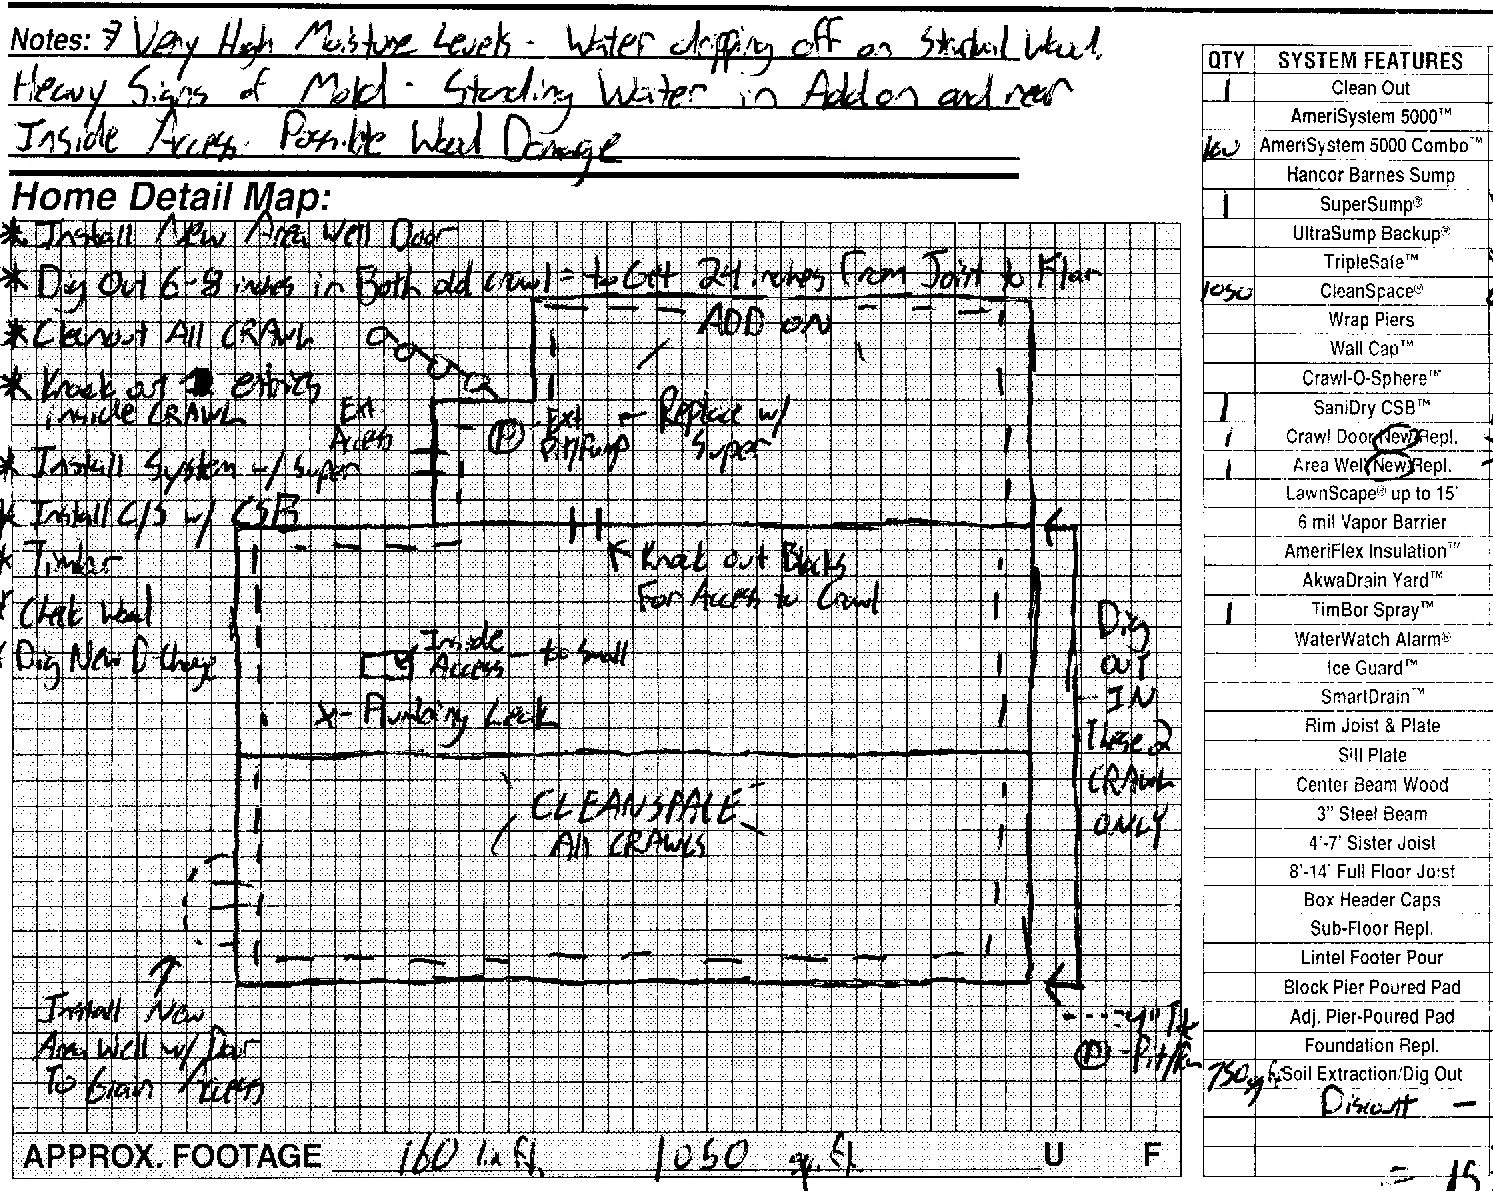 Notes: Very High Moisture Levels - Water dripping off on Structural Wood.
Heavy Signs of Mold - Standing Water in Add on and near
Inside Access. Possible Wood Damage
Home Detail Map:
* Install New Area Well Door
* Dig Out 6-8 inches in Both old crawl = to Get 24 inches From Joist to Floor
* Cleanout All CRAWL
* Knock out entries
inside CRAWL
* Install System w/ Super
* Install C/S w/ CSB
* Timbor
* Check Wood
* Dig New D-Charge
ADD ON
Ext
Access
P - Ext
Pit/Pump
← Replace w/
Super
Knock out Blocks
For Access to Crawl
Inside
Access - to Small
X - Plumbing Leak
CLEANSPACE
All CRAWLS
Dig
OUT
IN
These 2
CRAWL
ONLY
Install New
Area Well w/ Door
To Gain Access
P - Pit/
APPROX. FOOTAGE 160 lin ft. 1050 sq. ft. U F
QTY SYSTEM FEATURES
1 Clean Out
AmeriSystem 5000™
160 AmeriSystem 5000 Combo™
Hancor Barnes Sump
1 SuperSump®
UltraSump Backup®
TripleSafe™
1050 CleanSpace®
Wrap Piers
Wall Cap™
Crawl-O-Sphere™
1 SaniDry CSB™
1 Crawl Door New Repl.
1 Area Well New Repl.
LawnScape® up to 15'
6 mil Vapor Barrier
AmeriFlex Insulation™
AkwaDrain Yard™
1 TimBor Spray™
WaterWatch Alarm®
Ice Guard™
SmartDrain™
Rim Joist & Plate
Sill Plate
Center Beam Wood
3" Steel Beam
4'-7' Sister Joist
8'-14' Full Floor Joist
Box Header Caps
Sub-Floor Repl.
Lintel Footer Pour
Block Pier Poured Pad
Adj. Pier-Poured Pad
Foundation Repl.
750 sq ft Soil Extraction/Dig Out
Discount -
= 15